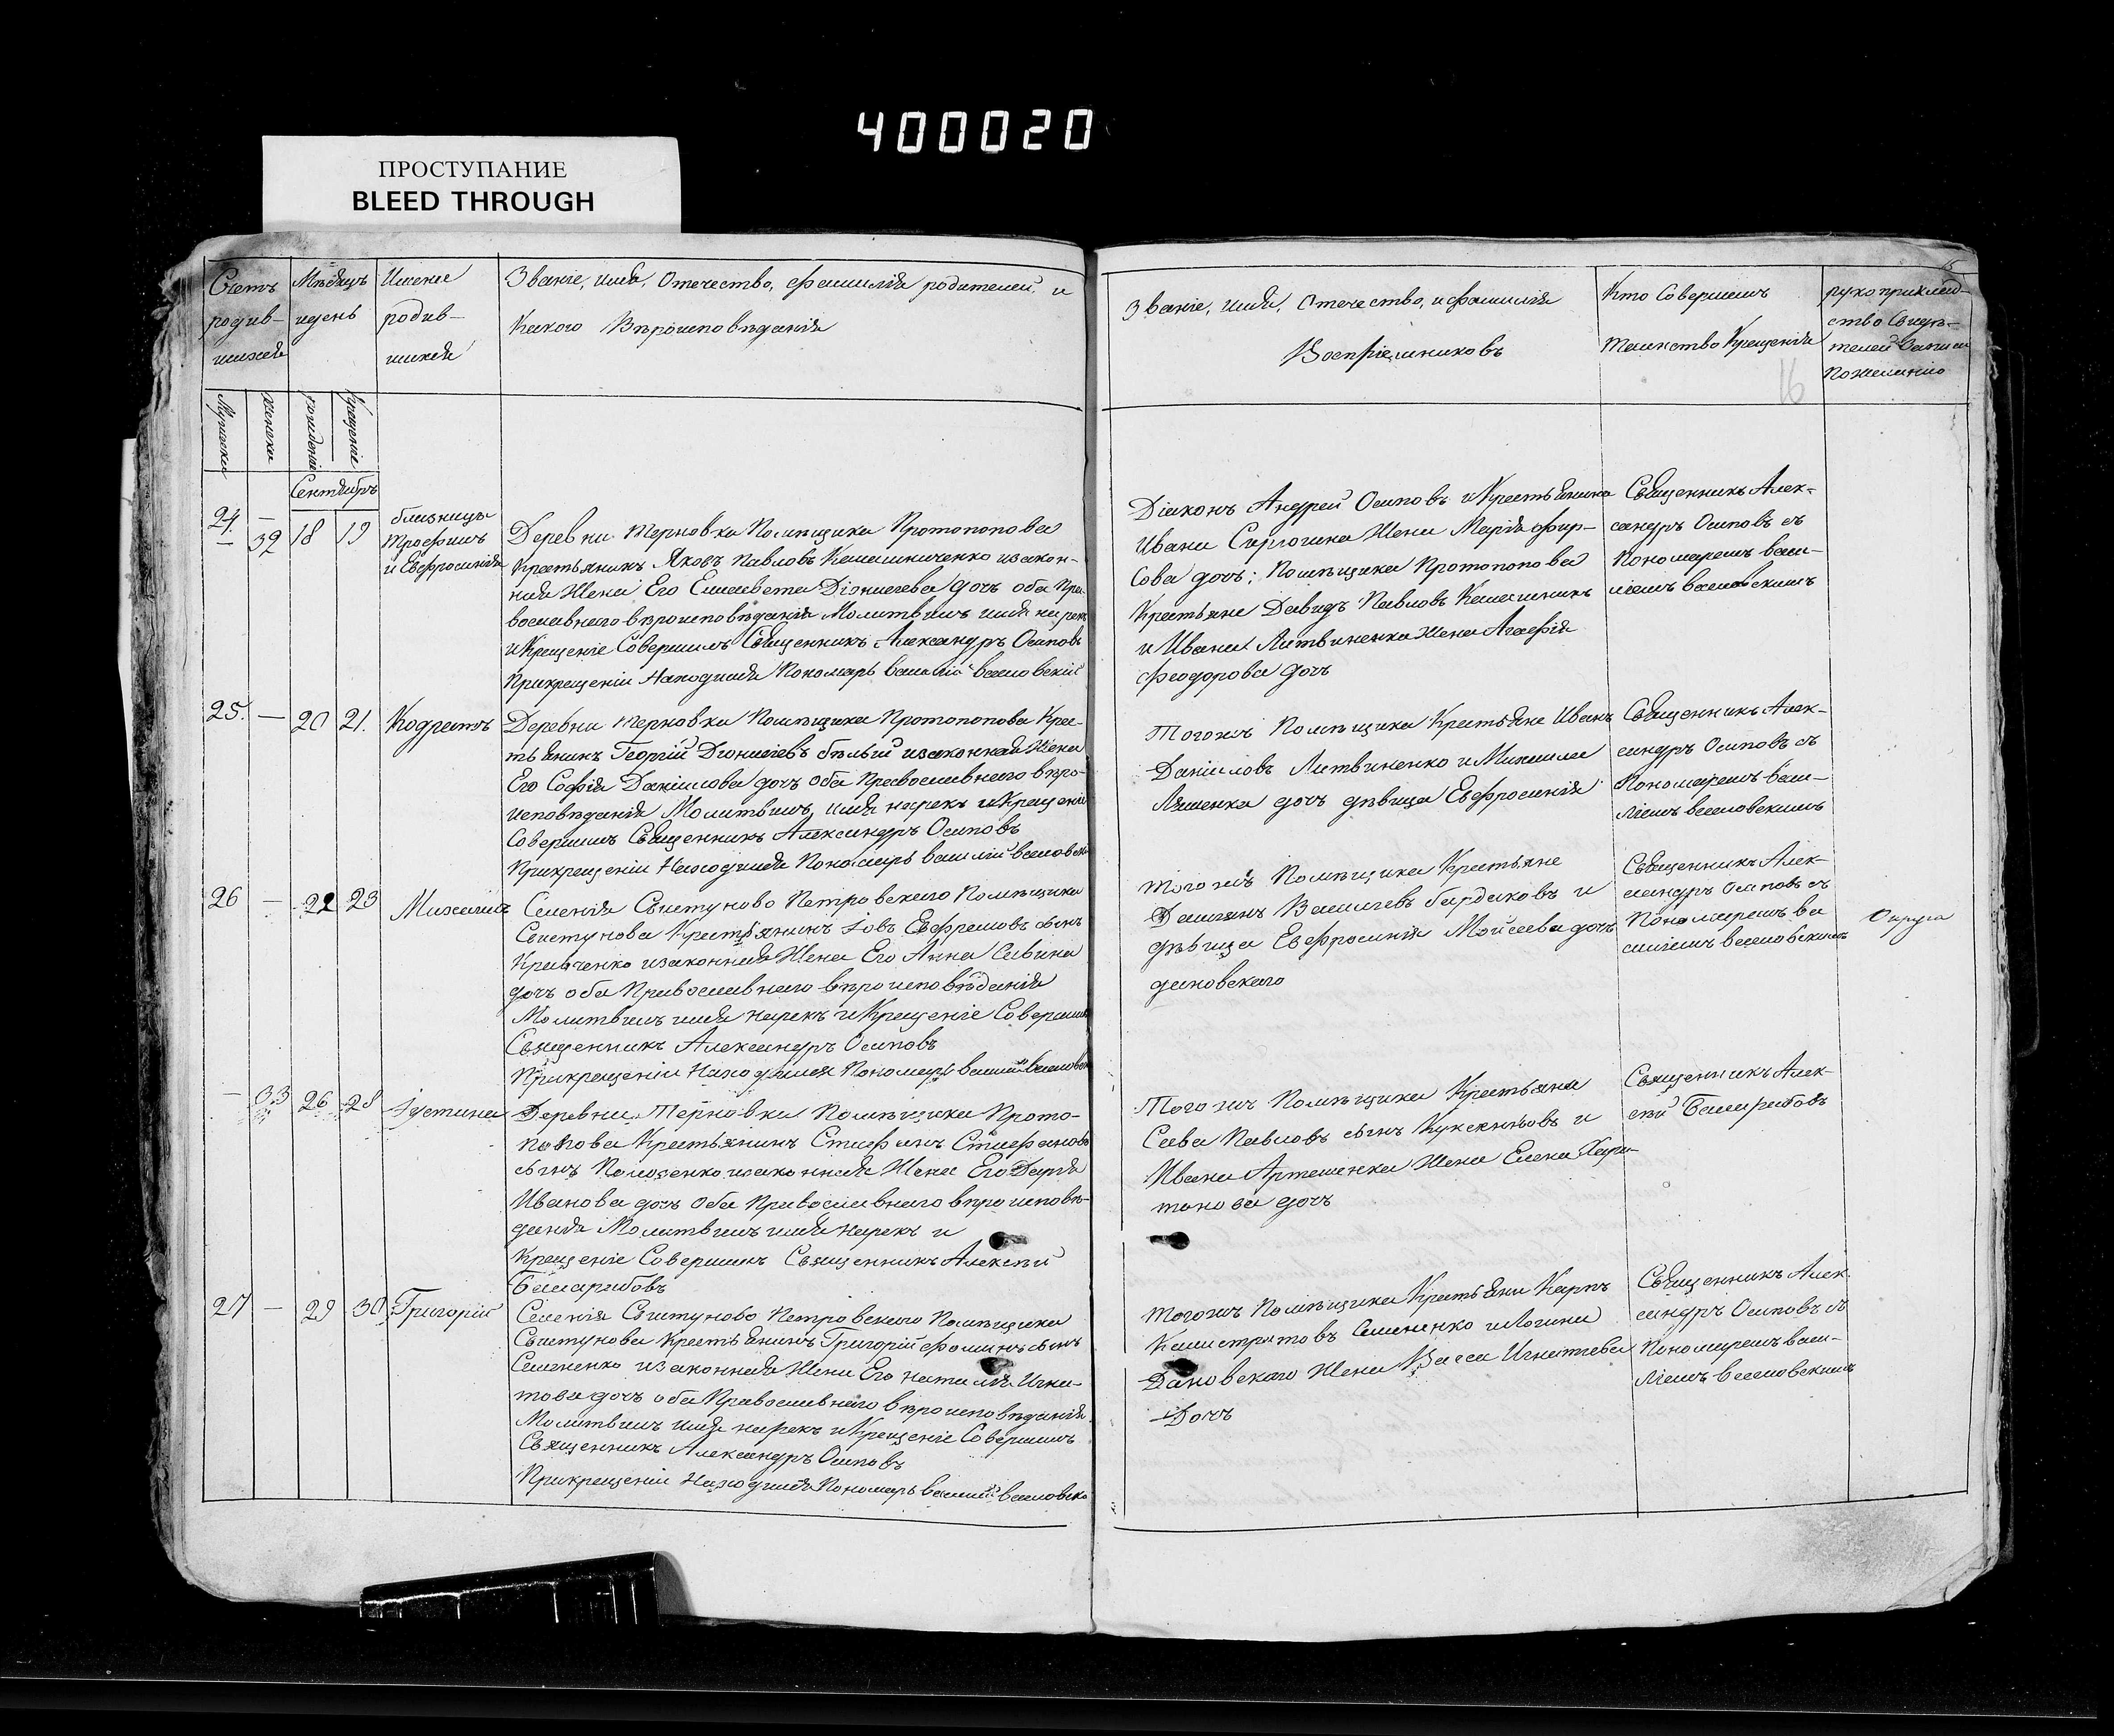 400020
ПРОСТУПАНИЕ
BLEED THROUGH
Счетъ
родив-
шихся
Мѣсяцъ
и день
Имена
родив-
шихся
Званіе, имя, Отечество, фамилія родителей, и
Какого Вѣроисповѣданія
Мужеска
Женска
рожденія
Крещеніе
Сентябрь
24.
—
—
32
18
19
близнецы
Трофимъ
и Евфросинія
Деревни Терновки Помѣщика Протопопова
Крестьянинъ Яковъ Павловъ Калашниченко изакон-
ная Жена Его Елисавета Діонисіева дочь оба Пра-
вославнаго вѣроисповѣданія Молитвилъ имя нарекъ
и Крещеніе Совершилъ Священникъ Александръ Осиповъ
Прикрещеніи Находился Пономарь василій васловскій
25.
—
20
21.
Кодратъ
Деревни Терновки Помѣщика Протопопова Крес-
тьянинъ Георгій Діонисіевъ бѣлый изаконная Жена
Его Софія Даніилова дочь оба Православнаго вѣро-
исповѣданія Молитвилъ, имя нарекъ и Крещеніе
Совершилъ Священникъ Александръ Осиповъ
Прикрещеніи Находился Пономарь василій
26
—
22
23
Михаила
Селенія Свистуново Петровскаго Помѣщика
Свистунова Крестьянинъ Іовъ Евфремовъ сынъ
Кравченко изаконная Жена Его Анна Савина
дочь оба Православнаго вѣроисповѣданія
Молитвилъ имя нарекъ и Крещеніе Совершилъ
Священникъ Александръ Осиповъ
Прикрещеніи Находился Пономарь василій
—
33
26
28
Іустина
Деревни Терновки Помѣщика Прото-
попова Крестьянинъ Стефанъ Стефановъ
сынъ изаконная Жена Его Дарія
Иванова дочь оба Православнаго вѣроисповѣ-
данія Молитвилъ имя нарекъ и
Крещеніе Совершилъ Священникъ Алексѣй
Башарибовъ
27
—
29
30
Григорій
Селенія Свистуново Петровскаго Помѣщика
Свистунова Крестьянинъ Григорій Фоминъ сынъ
Семененко изаконная Жена Его Наталія Игна-
това дочь оба Православнаго вѣроисповѣданія
Молитвилъ имя нарекъ и Крещеніе Совершилъ
Священникъ Александръ Осиповъ
Прикрещеніи Находился Пономарь василій
Званіе, имя, Отечество, и фамилія
Воспріемниковъ
Кто Совершалъ
Таинство Крещенія
рукоприклад-
ство Свидѣ-
телей Записи
Пожеланію
16
Діаконъ Андрей Осиповъ и Крестьянина
Ивана Жена Марія Фир-
сова дочь; Помѣщика Протопопова
Крестьяне Давидъ Павловъ Калашникъ
и Ивана Литвиненка Жена Агафія
Феодорова дочь
Священникъ Алек-
сандръ Осиповъ съ
Пономаремъ васи-
ліемъ васловскимъ
Тогожъ Помѣщика Крестьяне Иванъ
Даніиловъ Литвиненко и Михаила
Ляшенка дочь дѣвица Евфросинія
Священникъ Алек-
сандръ Осиповъ съ
Пономаремъ васи-
ліемъ васловскимъ
Тогожъ Помѣщика Крестьяне
Даміянъ Василіевъ бардаковъ и
дѣвица Евфросинія Мойсеева дочь
дановскаго
Священникъ Алек-
сандръ Осиповъ съ
Пономаремъ ва
силіемъ васловскимъ
Округа
Тогожъ Помѣщика Крестьяна
Сава Павловъ сынъ и
Ивана Артеменка Жена Елена Хари-
тонова дочь
Священникъ Алек-
сѣй Башарибовъ
Тогожъ Помѣщика Крестьяни Карпъ
Калистратовъ Семененко и Логина
Дановскаго Жена Васса Игнатіева
Дочь
Священникъ Алек-
сандръ Осиповъ съ
Пономаремъ васи-
ліемъ васловскимъ